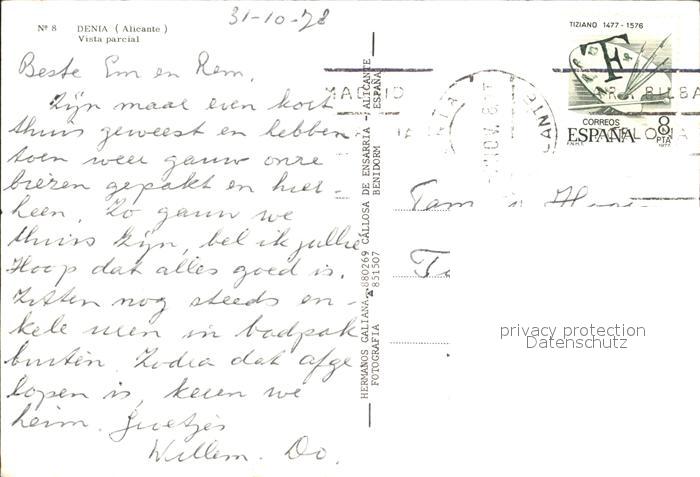 31-10-78
Nº 8 DENIA (Alicante)
Vista parcial
Beste Em en Rem,
Zijn maar even kort
thuis geweest en hebben
toen weer gauw onze
biezen gepakt en hier-
heen. Zo gauw we
thuis zijn, bel ik jullie
Hoop dat alles goed is.
Zitten nog steeds en-
kele uren in badpak
buiten. Zodra dat afge
lopen is, keren we
heim. Groetjes
Willem. Do.
HERMANOS GALIANA 880269 CALLOSA DE ENSARRIA - ALICANTE
FOTOGRAFIA 851507 BENIDORM ESPAÑA
TIZIANO 1477-1576
CORREOS
ESPAÑA
8
PTA
F.N.M.T.
1977
MADRID
BILBA
Fam
privacy protection
Datenschutz